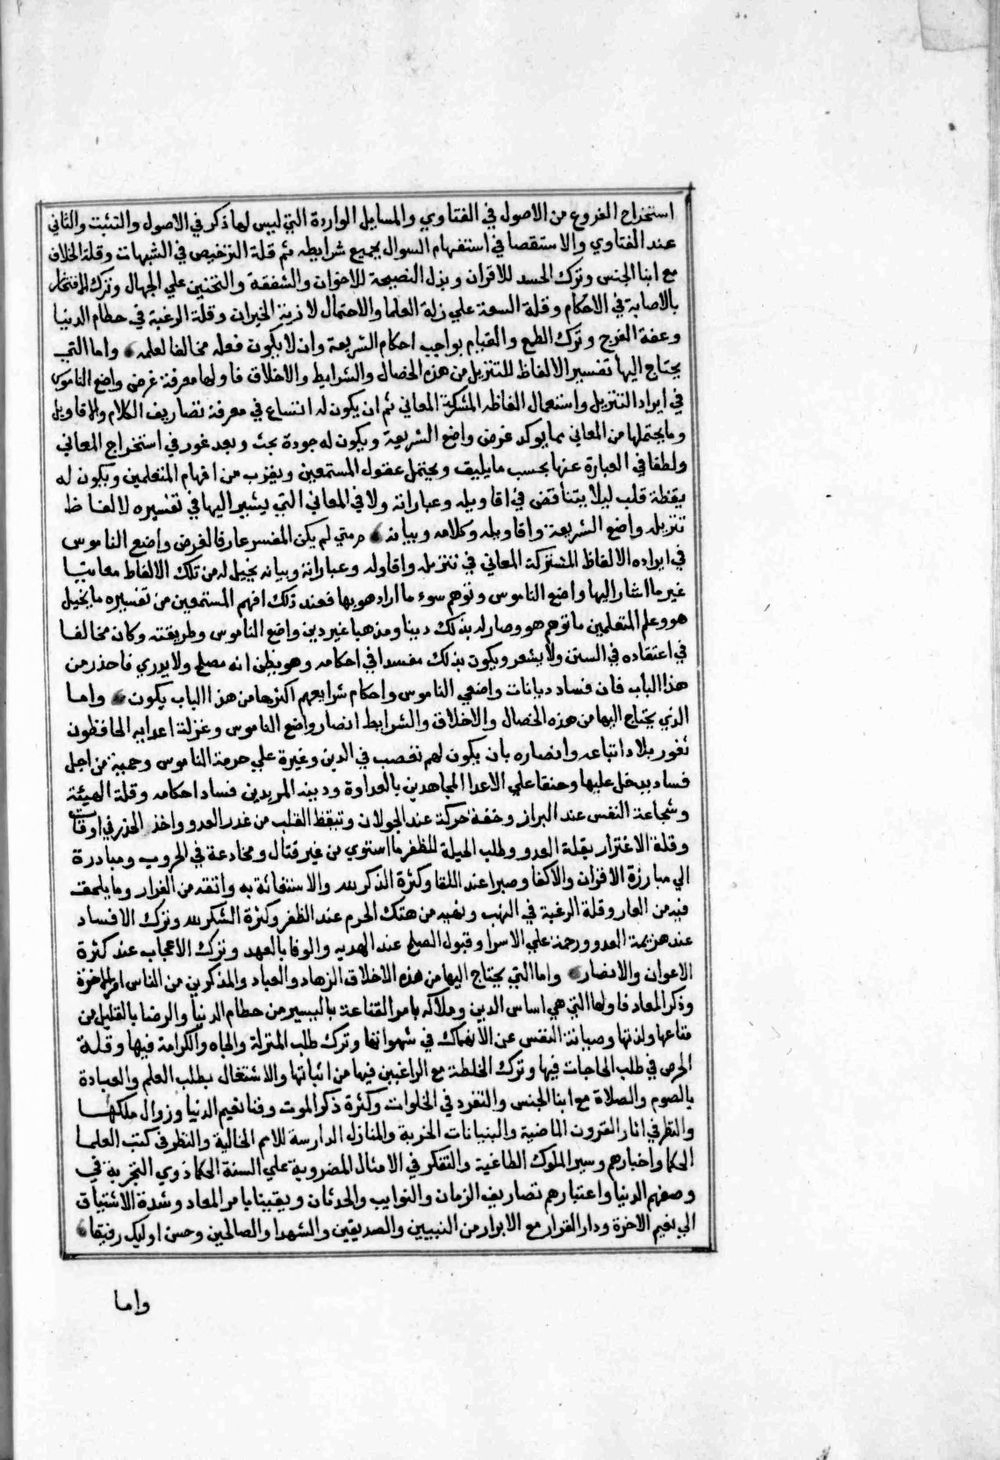 استخراج الفروع من الاصول في الفتاوي والمسايل الواردة التي ليس لها ذكر في الاصول والتثبت والتاني
عند الفتاوي والاستقصا في استفهام السوال بجميع شرايطه ثم قلة الترخيص في الشبهات وقلة الخلاف
مع ابنا الجنس وترك الحسد للاقران وبذل النصيحة للاخوان والشفقة والتحنين علي الجهال وترك الافتخار
بالاصابة في الاحكام وقلة السعة علي زلة العلما والاحتمال لاذية الجيران وقلة الرغبة في حطام الدنيا
وعفة الفرج وترك الطمع والقيام بواجب احكام الشريعة وان لا يكون فعله مخالفا لعلمه واما التي
يحتاج اليها تفسير الالفاظ للتنزيل من هذه الخصال والشرايط والاخلاق فاولها معرفة غرض واضع الناموس
في ايراد التنزيل واستعمال الفاظه المشتركة المعاني ثم ان يكون له اتساع في معرفة تصاريف الكلام والاقاويل
وما يحتملها من المعاني بما يوكد غرض واضع الشريعة ويكون له جودة بحث وبعد غور في استخراج المعاني
ولطفا في العبارة عنها بحسب ما يليق ويحتمل عقول المستمعين ويقرب من افهام المتعلمين ويكون له
يقظة قلب ليلا يتناقض في اقاويله وعباراته ولا في المعاني التي يشير اليها في تفسيره لالفاظ
تنزيله واضع الشريعة واقاويله وكلامه وبيانه ومتي لم يكن المفسر عارفا لغرض واضع الناموس
في ايراده الالفاظ المشتركة المعاني في تنزيله واقاوله وعباراته وبيانه يخيل له من تلك الالفاظ معانيا
غير ما اشار اليها واضع الناموس وتوهم سوء ما اراد هو بها فعند ذلك افهم المستمعين من تفسيره ما يخيل
هو وعلم المتعلمين ما توهم هو وصار له بذلك دينا ومذهبا غير دين واضع الناموس وطريقته وكان مخالفا
في اعتقاده في السنن ولا يشعر ويكون بذلك مفسدا في احكامه وهو يظن انه مصلح ولا يدري فاحذر من
هذا الباب فان فساد ديانات واضعي الناموس واحكام شرايعهم اكثرها من هذا الباب يكون واما
الذي يحتاج اليها من هذه الخصال والاخلاق والشرايط انصار واضع الناموس وغزلة اعدايه الحافظون
ثغور بلاد اتباعه وانصاره بان يكون لهم تعصب في الدين وغيرة علي حرمة الناموس وحمية من اجل
فساد يدخل عليها وحنقا علي الاعدا المجاهدين بالعداوة ودينه المريدين فساد احكامه وقلة الهيئة
وشجاعة النفس عند البراز وخفة حركة عند الجولان وتيقظ القلب من غدر العدو واخذ الحذر في اوقات
وقلة الاغترار بقلة العدو وطلب الحيلة للظفر ما استوي من غير قتال ومخادعة في الحروب ومبادرة
الي مبارزة الاقران والاكفا وصبرا عند اللقا وكثرة الذكر لله والاستغاثة به وانفة من الفرار وما يلحق
فيه من العار وقلة الرغبة في النهب ونفيه من هتك الحرم عند الظفر وكثرة الشكر لله وترك الافساد
عند هزيمة العدو ورحمة علي الاسرا وقبول الصلح عند الهديه والوفا بالعهد وترك الاعجاب عند كثرة
الاعوان والانصار واما التي يحتاج اليها من هذه الاخلاق الزهاد والعباد والمذكرين من الناس امر الاخرة
وذكر المعاد فاولها التي هي اساس الدين وملاكه بامر القناعة باليسير من حطام الدنيا والرضا بالقليل من
متاعها ولذتها وصيانة النفس عن الانهماك في شهواتها وترك طلب المنزلة والجاه والكرامة فيها وقلة
الحرص في طلب الحاجات فيها وترك الخلطة مع الراغبين فيها من ابنائها والاشتغال بطلب العلم والعبادة
بالصوم والصلاة مع ابنا الجنس والتفرد في الخلوات وكثرة ذكر الموت وفنا نعيم الدنيا وزوال ملكها
والنظر في اثار القرون الماضية والبنيانات الخربة والمنازل الدارسة للامم الخالية والنظر في كتب العلما
الحكا واخبارهم وسير الملوك الطاغية والتفكر في الامثال المضروبة علي السنة الحكا ذوي التجربة في
وصفهم الدنيا واعتبارهم تصاريف الزمان والنوايب والحدثان ويقينا بامر المعاد وشدة الاشتياق
الي نعيم الاخرة ودار القرار مع الابرار من النبيين والصديقين والشهدا والصالحين وحسن اوليك رفيقا
واما